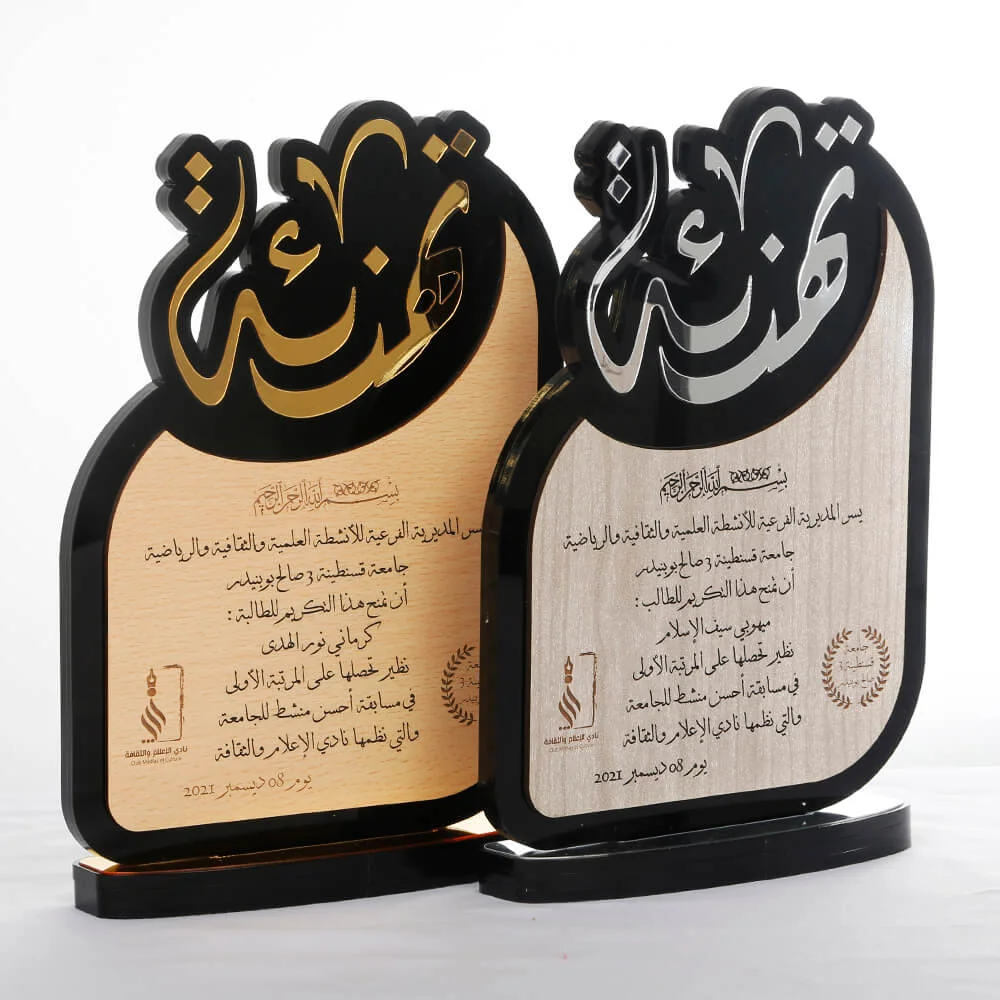 تهنئة
بسم الله الرحمن الرحيم
يسر المديرية الفرعية للأنشطة العلمية والثقافية والرياضية
جامعة قسنطينة 3 صالح بوبنيدر
أن تمنح هذا التكريم للطالبة :
كرماني نور الهدى
نظير تحصلها على المرتبة الأولى
في مسابقة أحسن منشط للجامعة
والتي نظمها نادي الإعلام والثقافة
يوم 08 ديسمبر 2021
نادي الإعلام والثقافة
Club Médias et Culture
تهنئة
بسم الله الرحمن الرحيم
يسر المديرية الفرعية للأنشطة العلمية والثقافية والرياضية
جامعة قسنطينة 3 صالح بوبنيدر
أن تمنح هذا التكريم للطالب :
ميهوبي سيف الإسلام
نظير تحصلها على المرتبة الأولى
في مسابقة أحسن منشط للجامعة
والتي نظمها نادي الإعلام والثقافة
يوم 08 ديسمبر 2021
نادي الإعلام والثقافة
Club Médias et Culture
جامعة
قسنطينة 3
صالح بوبنيدر